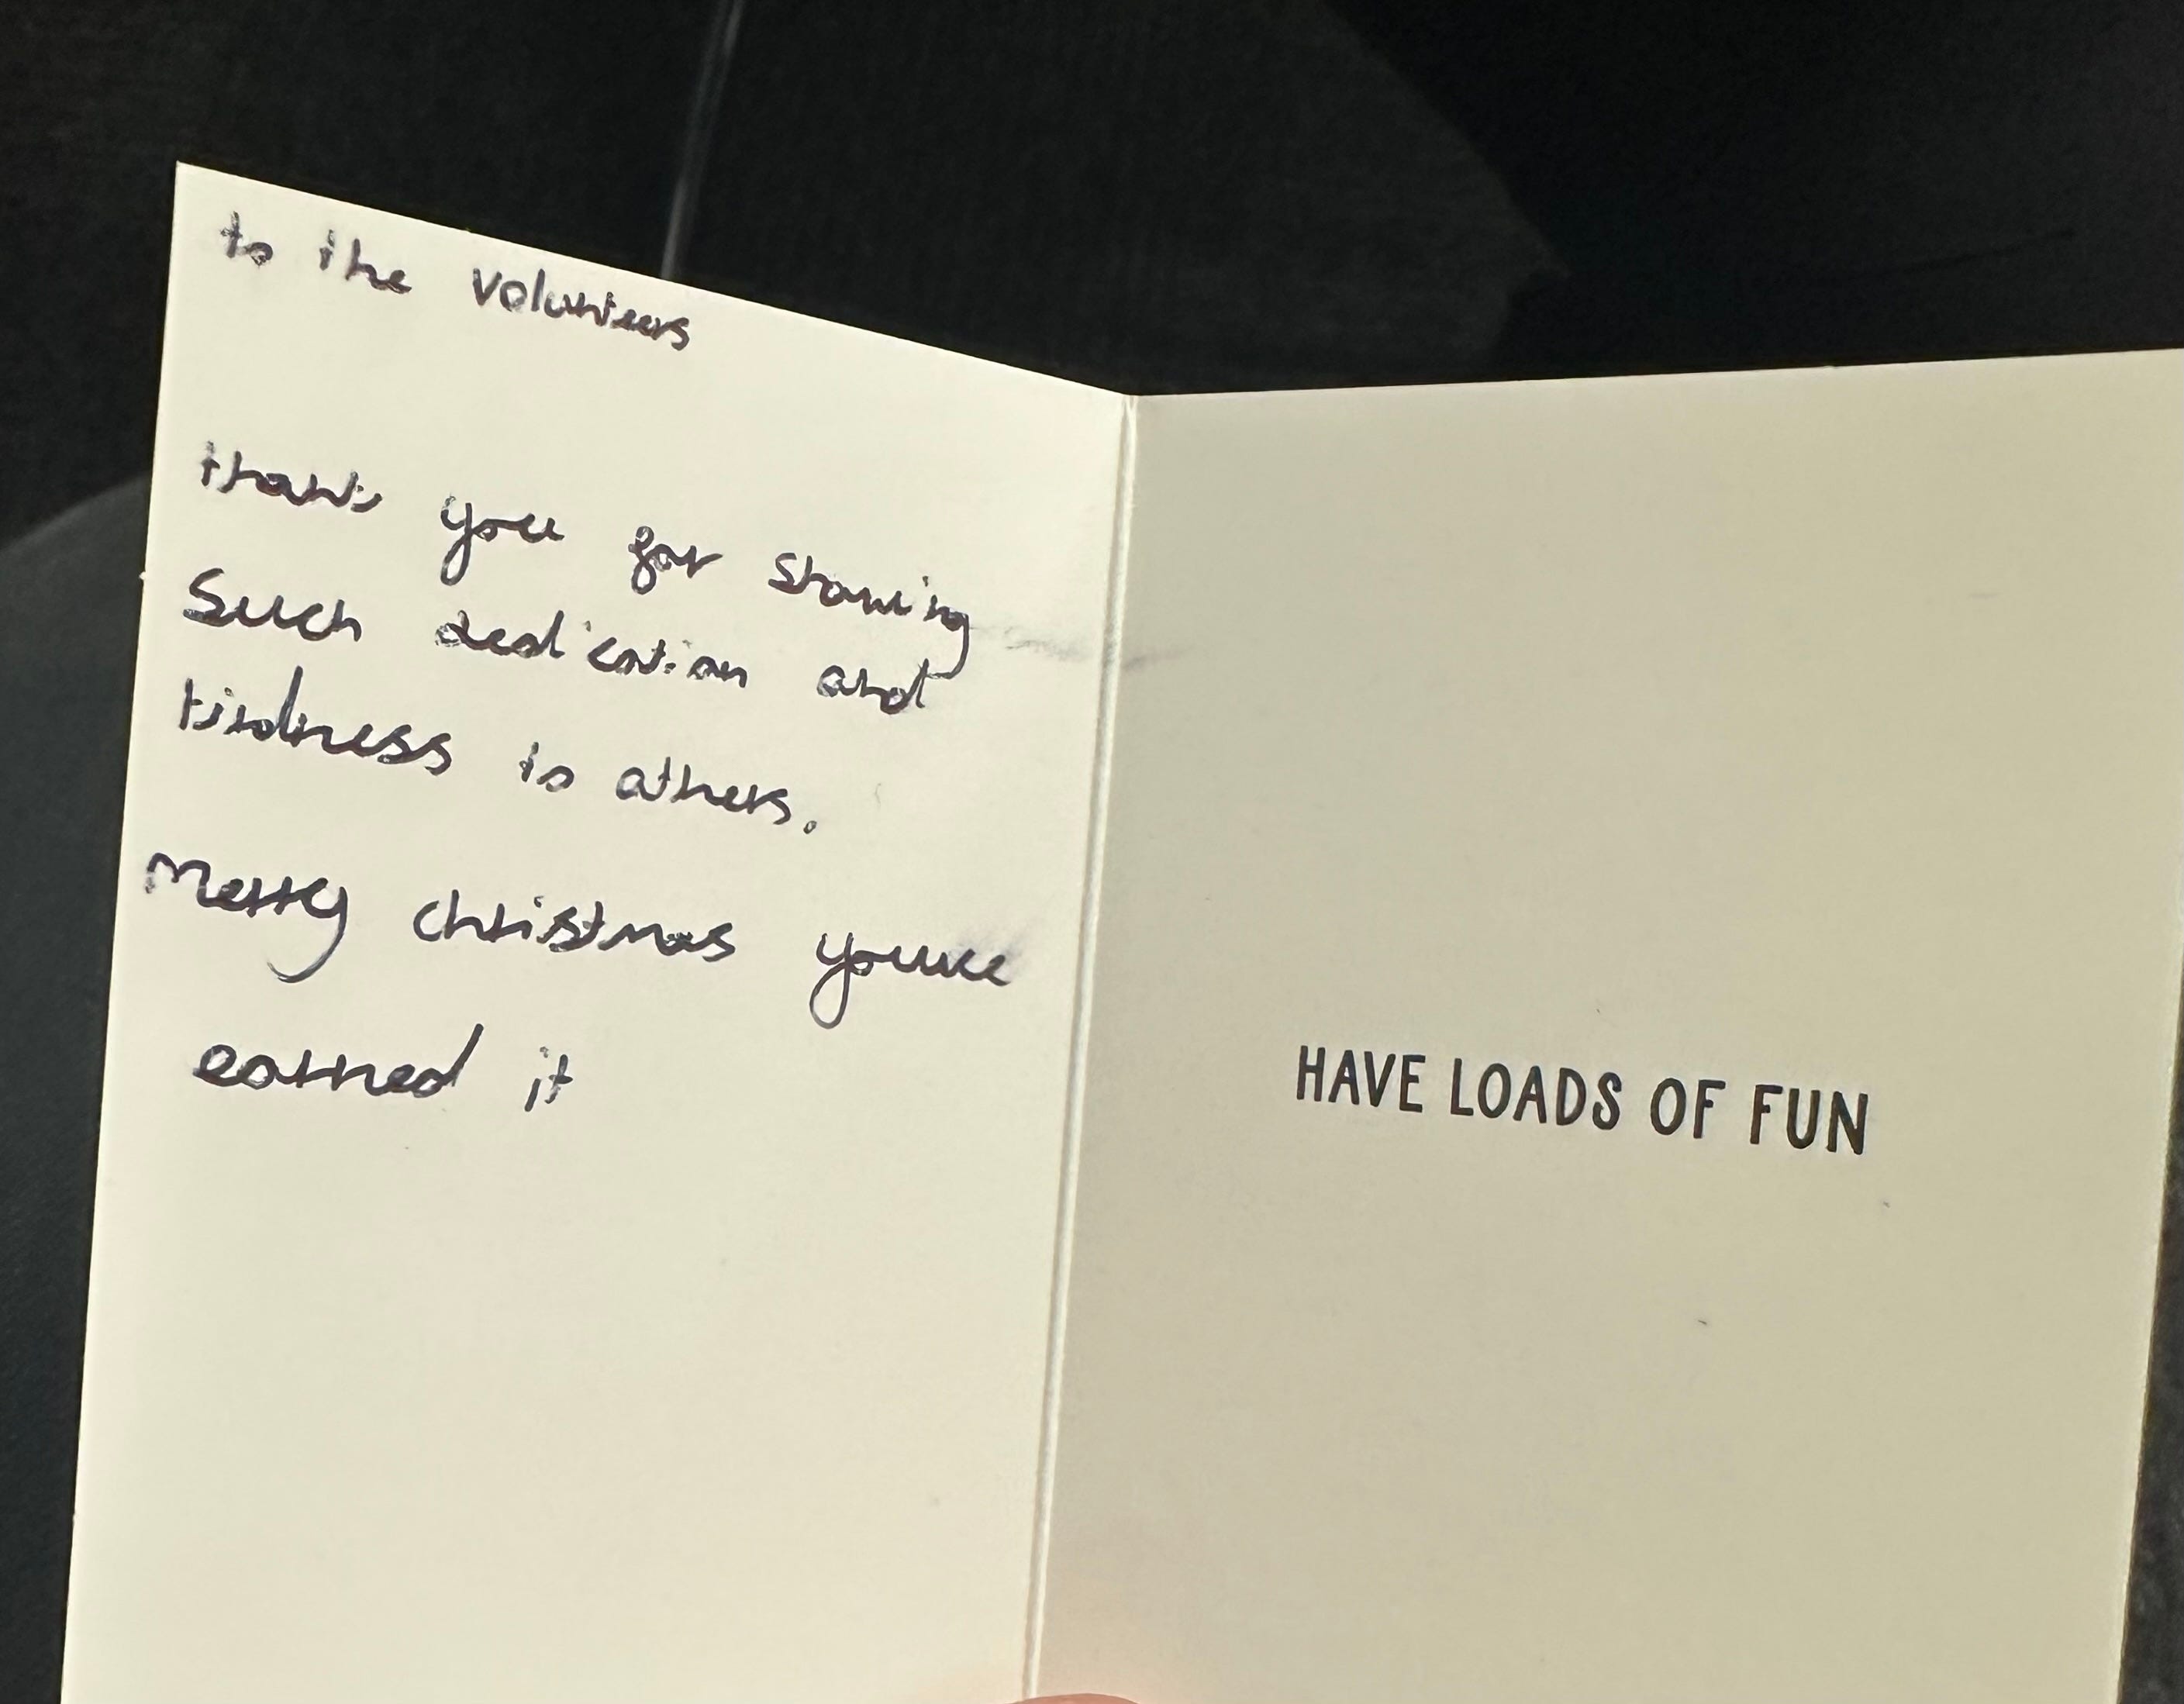 to the volunteers
thank you for showing
such dedication and
kindness to others.
Merry christmas youve
earned it
HAVE LOADS OF FUN